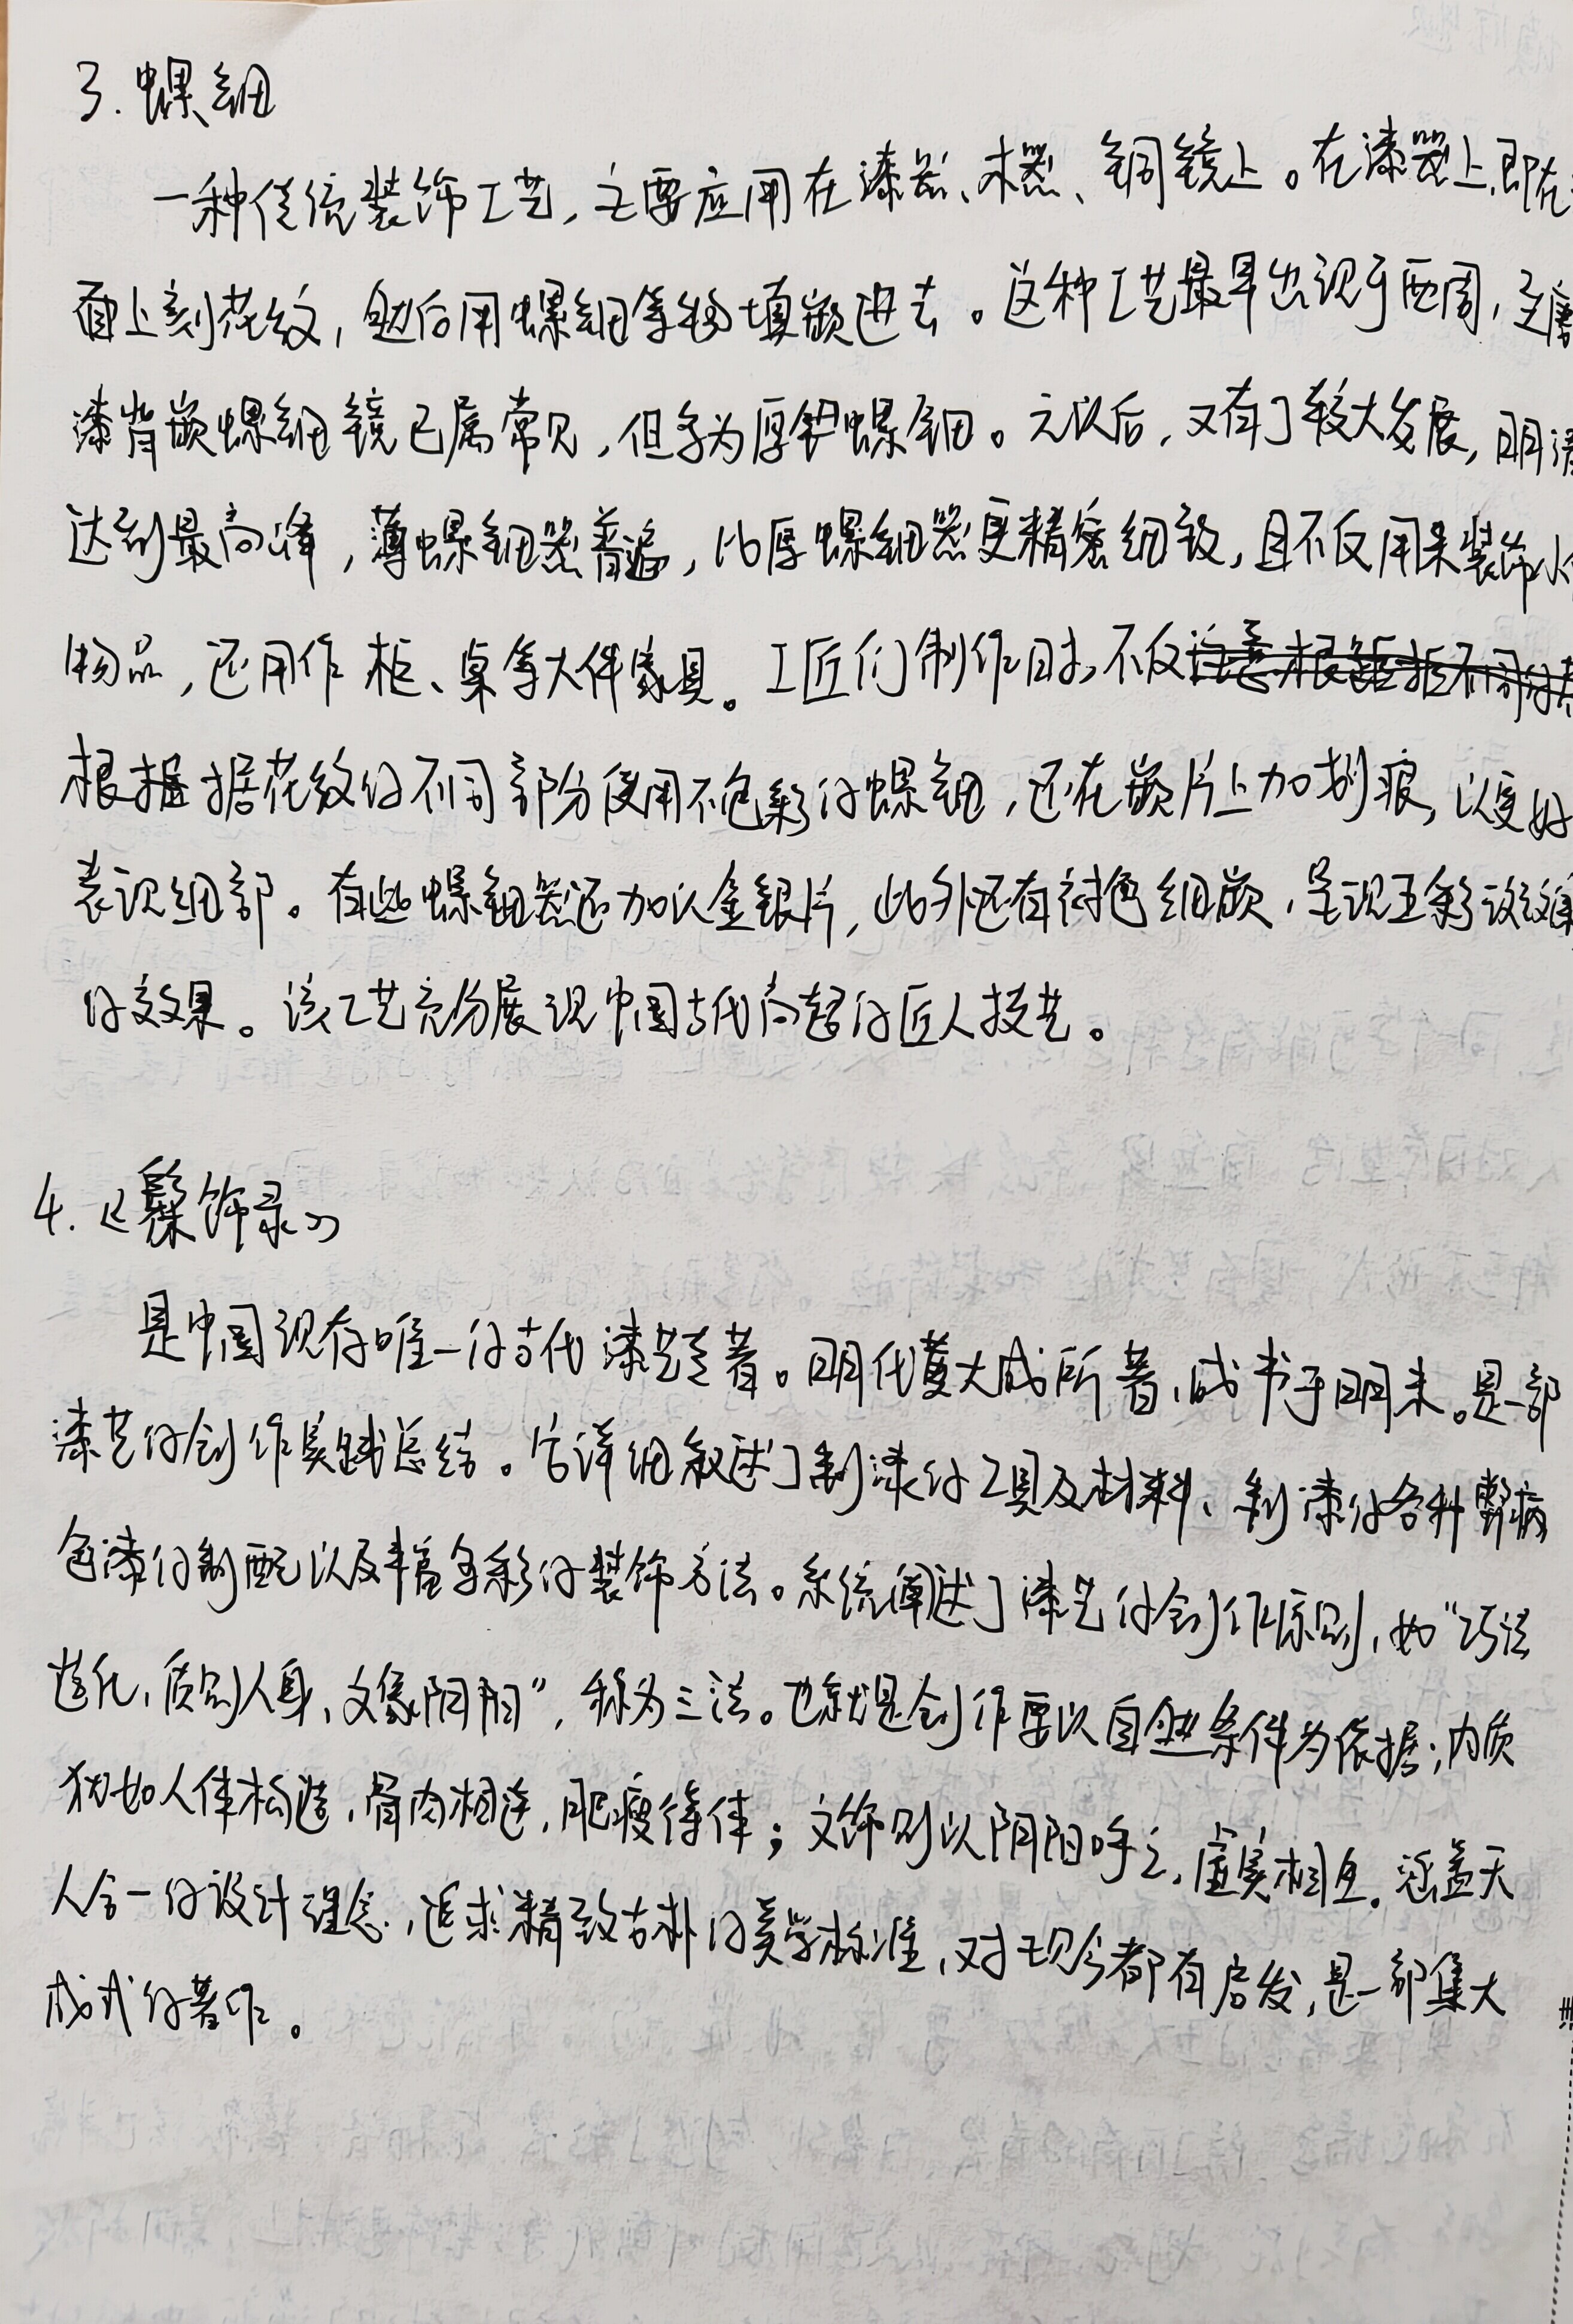 3. 螺钿
一种传统装饰工艺,主要应用在漆器、木器、铜镜上。在漆器上,即在
面上刻花纹,然后用螺钿等物填嵌进去。这种工艺最早出现于西周,至唐
漆背嵌螺钿镜已属常见,但多为厚螺钿。元以后,又有了较大发展,明清
达到最高峰,薄螺钿器普遍,比厚螺钿器更精密细致,且不仅用来装饰小
物品,还用作柜、桌等大件家具。工匠们制作时,不仅
根据据花纹的不同部分使用不色彩的螺钿,还在嵌片上加划痕,以更好
表现细部。有些螺钿器还加以金银片,此外还有衬色钿嵌,呈现五彩缤
的效果。该工艺充分展现中国古代高超的匠人技艺。
4.《髹饰录》
是中国现存唯一的古代漆艺专著。明代黄大成所著,成书于明末。是一部
漆艺的创作实践总结。它详细叙述了制漆的工具及材料、制漆的各种弊病
色漆的制配以及丰富多彩的装饰方法。系统阐述了漆艺的创作原则,如“巧法
造化,质则人身,文象阴阳”,称为三法。也就是创作要以自然条件为依据;内质
犹如人体构造,骨肉相连,肥瘦得体;文饰则以阴阳呼之,虚实相互。涵盖天
人合一的设计理念,追求精致古朴的美学标准,对现今都有启发,是一部集大
成式的著作。